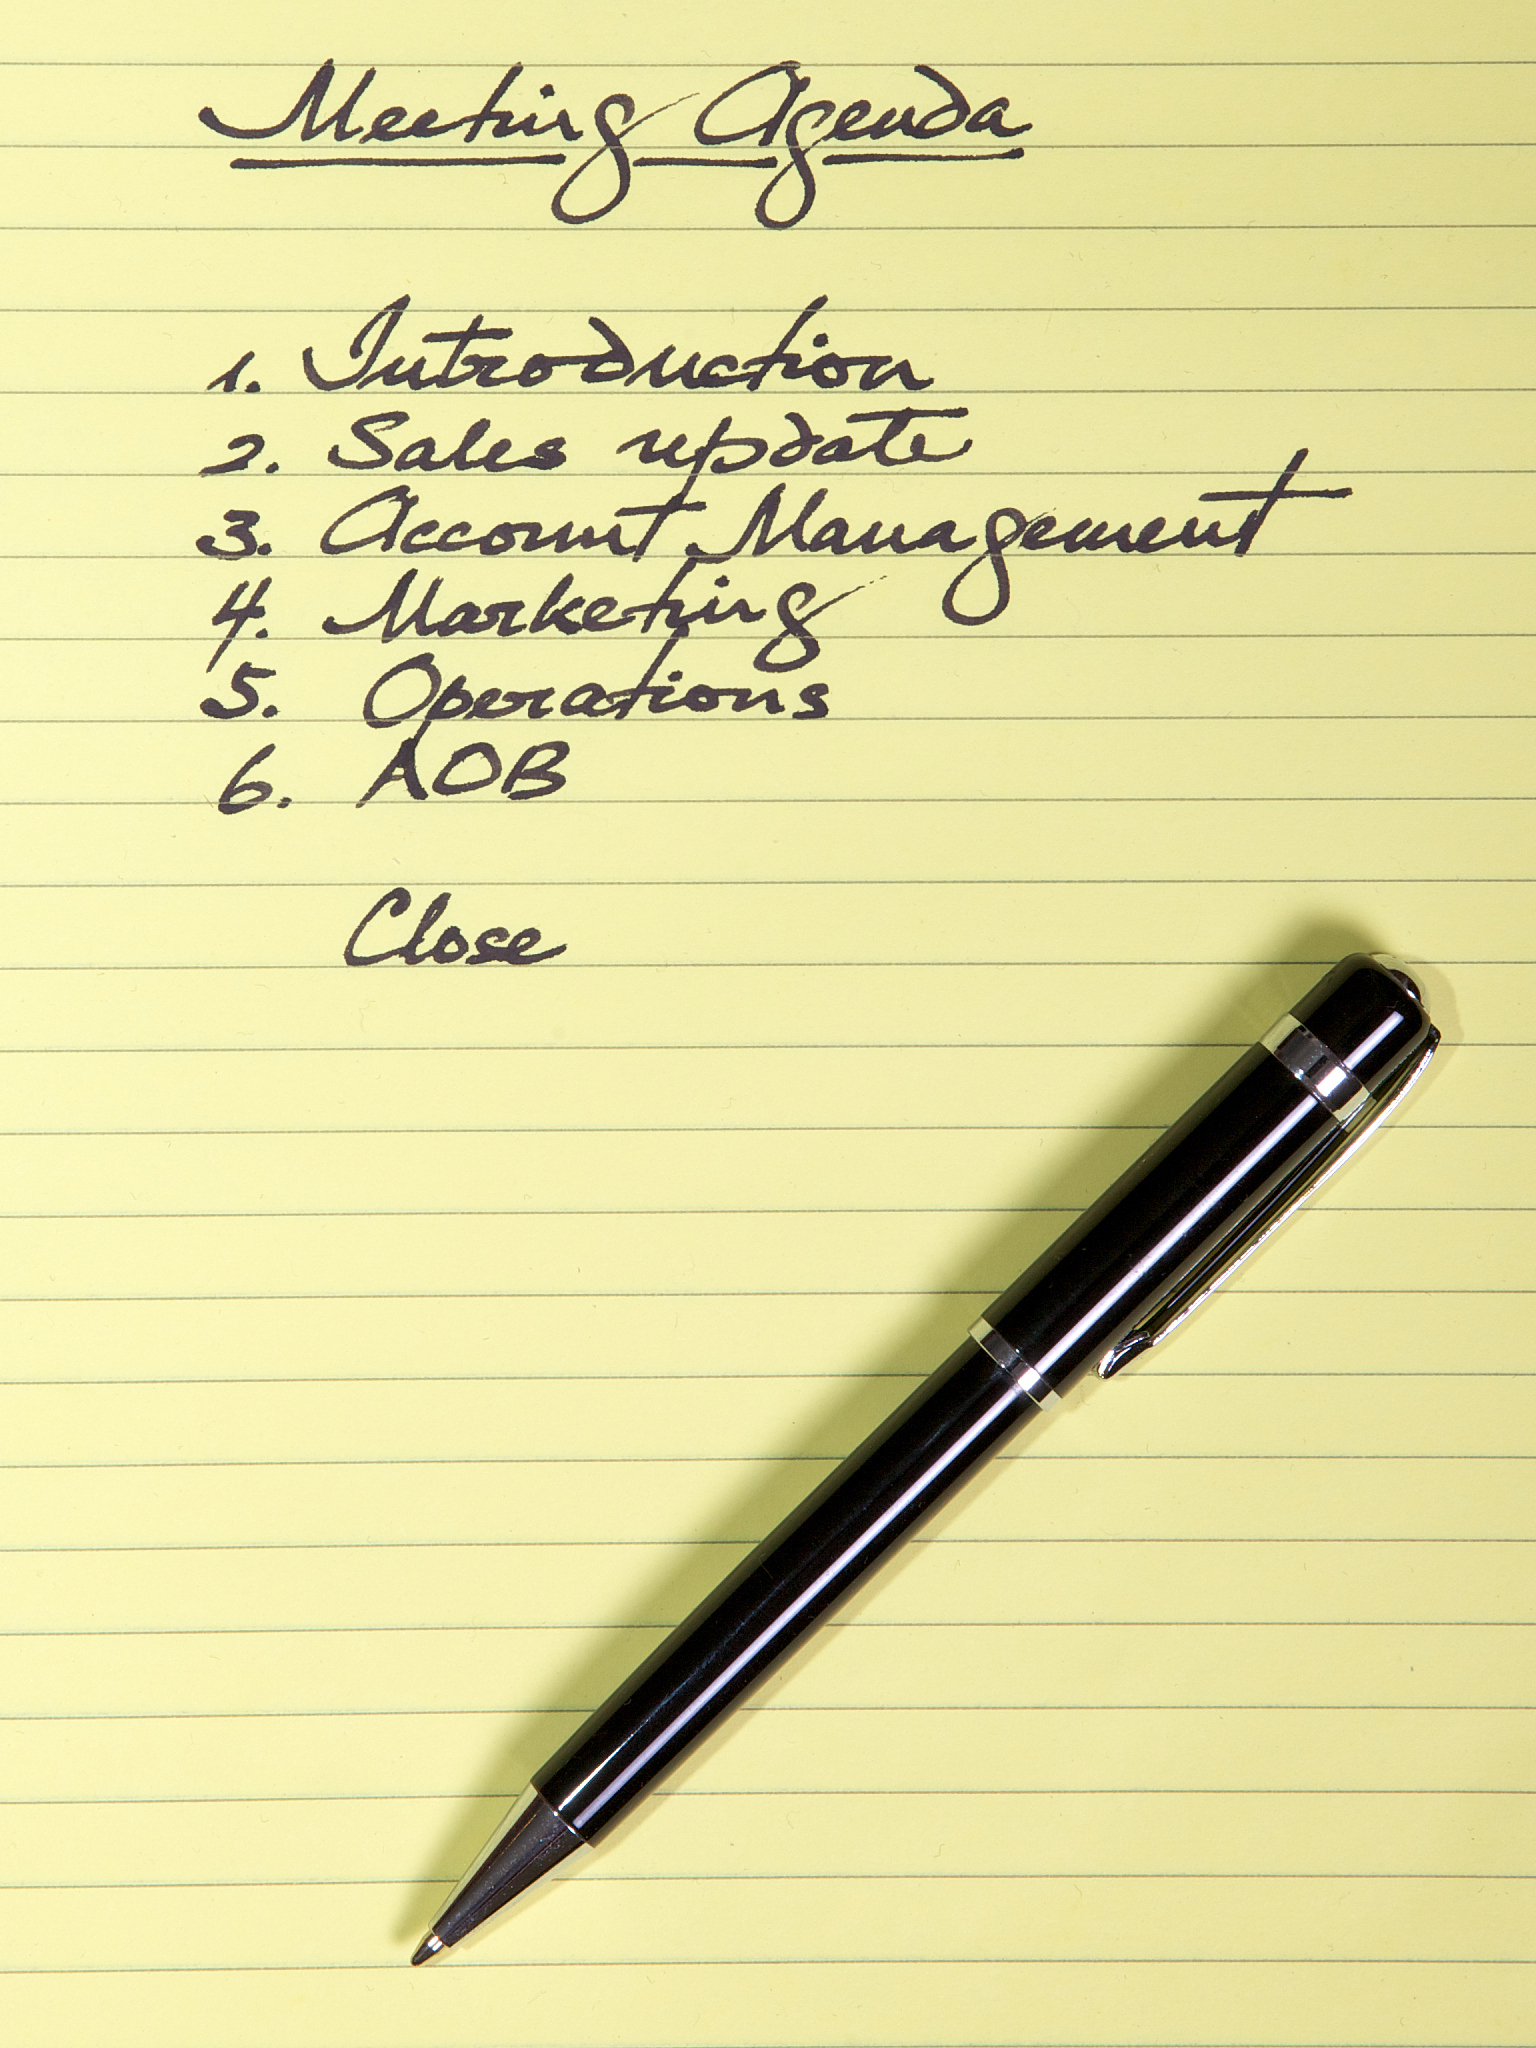 Meeting Agenda
1. Introduction
2. Sales update
3. Account Management
4. Marketing
5. Operations
6. AOB
Close